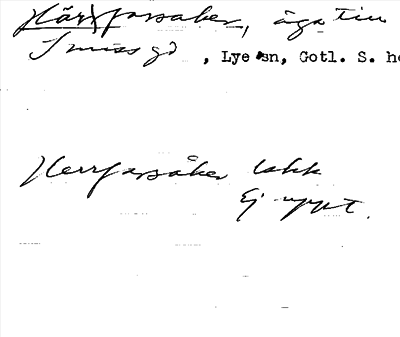 Härfarsaker, äga till
Smiss gd, Lye sn, Gotl. S. h
Herrfarsåker takk
Ej uppt.